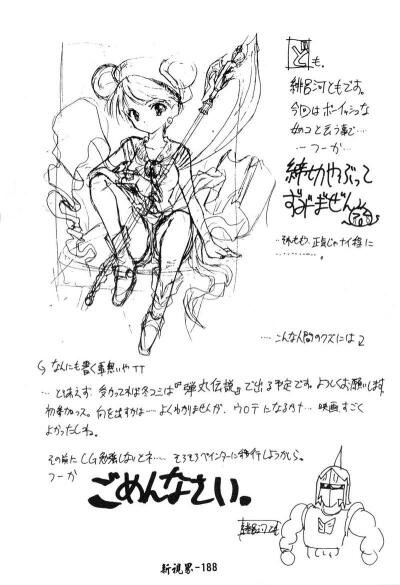 ども。
緋呂河ともです。
今回はボーイッシュな
女のコと言う事で…
…つーか…
締切やぶって
すびばぜん
…それもや、正気じゃナイ程に
…………。
…こんな人間のクズには
なんにも書く事無いや TT
…とりあえず、受かってれば冬コミは『弾丸伝説』で出る予定です。よろしくお願いします。
初参加っス。何を出すかは…よくわかりませんが、ウロテになるカナ…映画、すごく
よかったしね。
その前にCG勉強しないとネ…。そろそろペインターに移行しようかしら。
つーか
ごめんなさい。
緋呂河とも
新視界-188